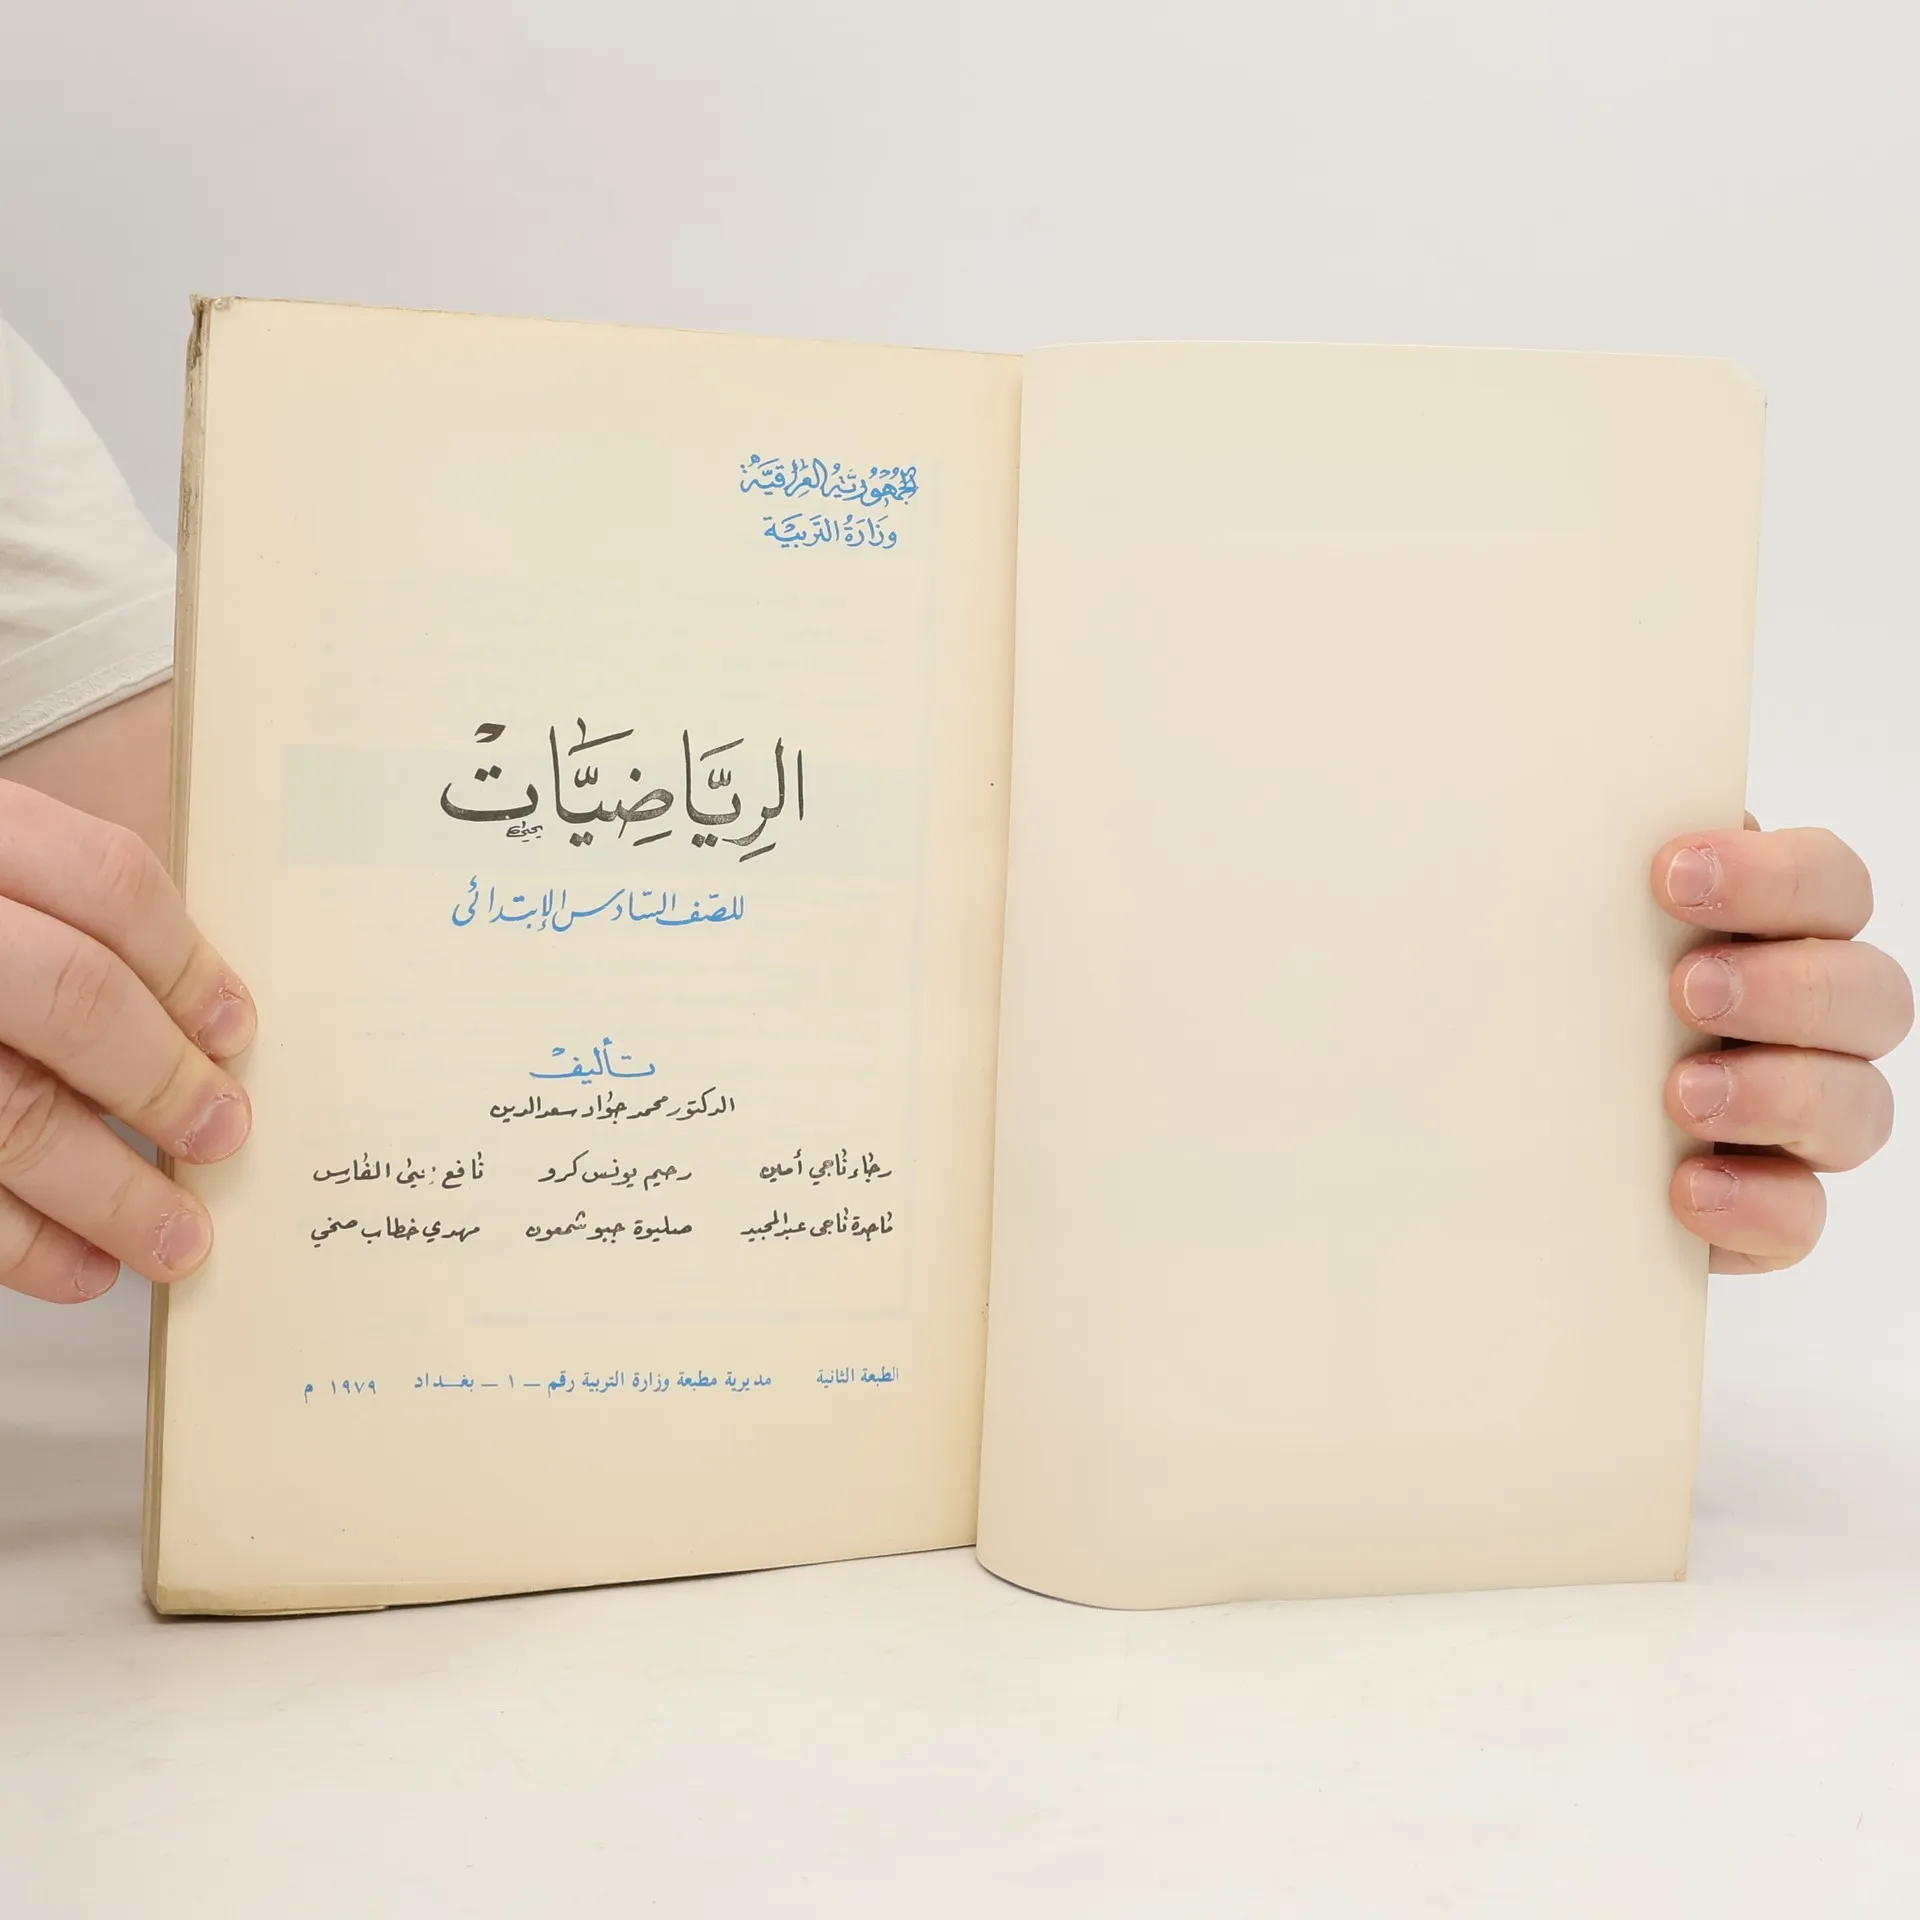 الجُمْهُورِيَّةُ العِرَاقِيَّةُ
وَزَارَةُ التَّرْبِيَة
الرِيَّاضِيَّات
يحيى
للصّف السّادس الإبتدائى
تأليف
الدكتور محمد جواد سعد الدين
رجاء ناجي أمين رحيم يونس كرو نافع الفارس
ماجدة ناجى عبد المجيد صليوة جبو شمعون مهدي خطاب صخي
الطبعة الثانية مديرية مطبعة وزارة التربية رقم ــ ١ ــ بغــداد ١٩٧٩ م